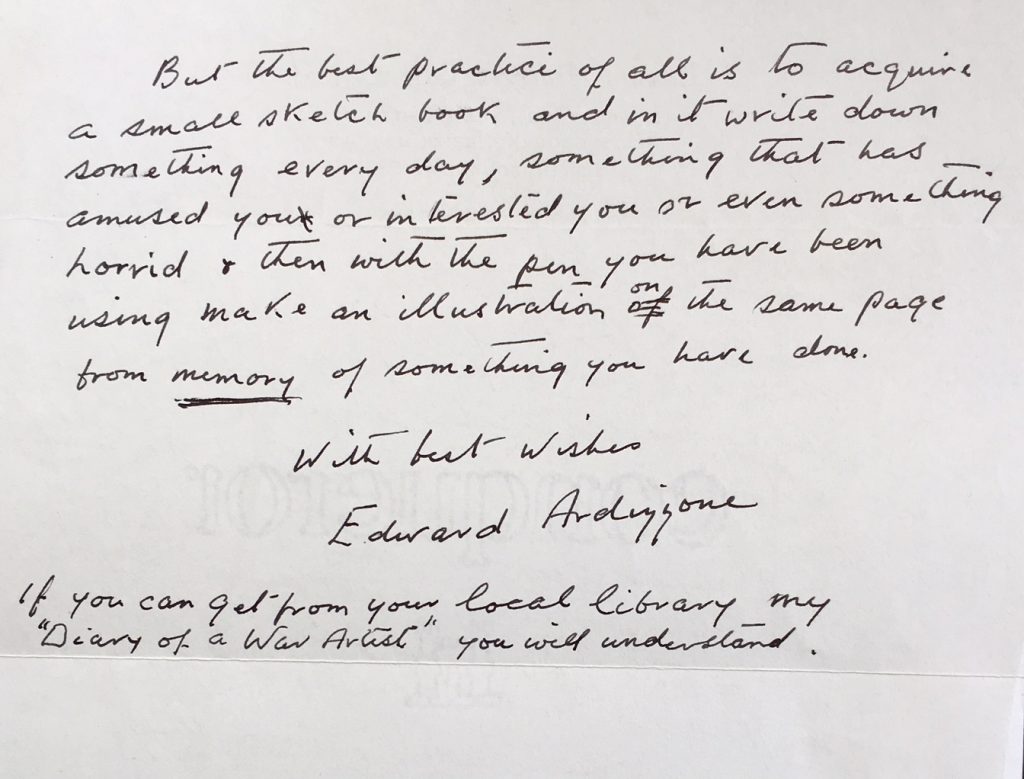 But the best practice of all is to acquire
a small sketch book and in it write down
something every day, something that has
amused you or interested you or even something
horrid & then with the pen you have been
using make an illustration on the same page
from memory of something you have done.
With best wishes
Edward Ardizzone
If you can get from your local library my
"Diary of a War Artist" you will understand.